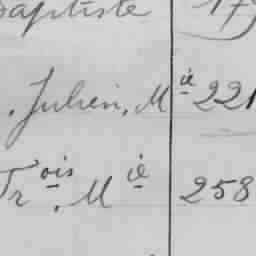 Baptiste 179
, Julien, Mie 221
Frois. Mie 258